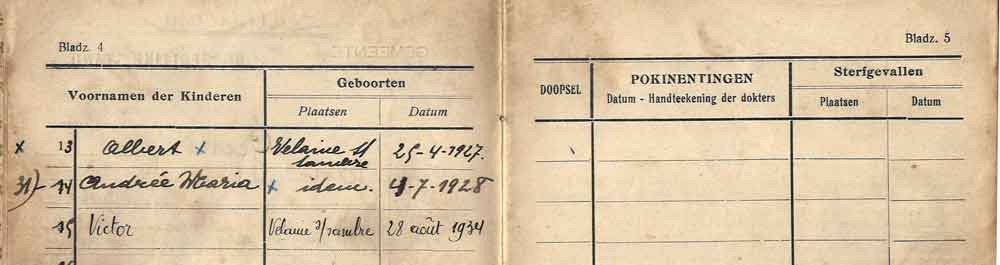 Bladz. 4
Voornamen der Kinderen
Geboorten
Plaatsen Datum
x 13 Albert x Velaine s/ Sambre 25-4-1927.
31)- 14 Andrée Maria x idem. 4-7-1928
15 Victor Velaine s/sambre 28 août 1934
Bladz. 5
DOOPSEL
POKINENTINGEN
Datum - Handteekening der dokters
Sterfgevallen
Plaatsen Datum